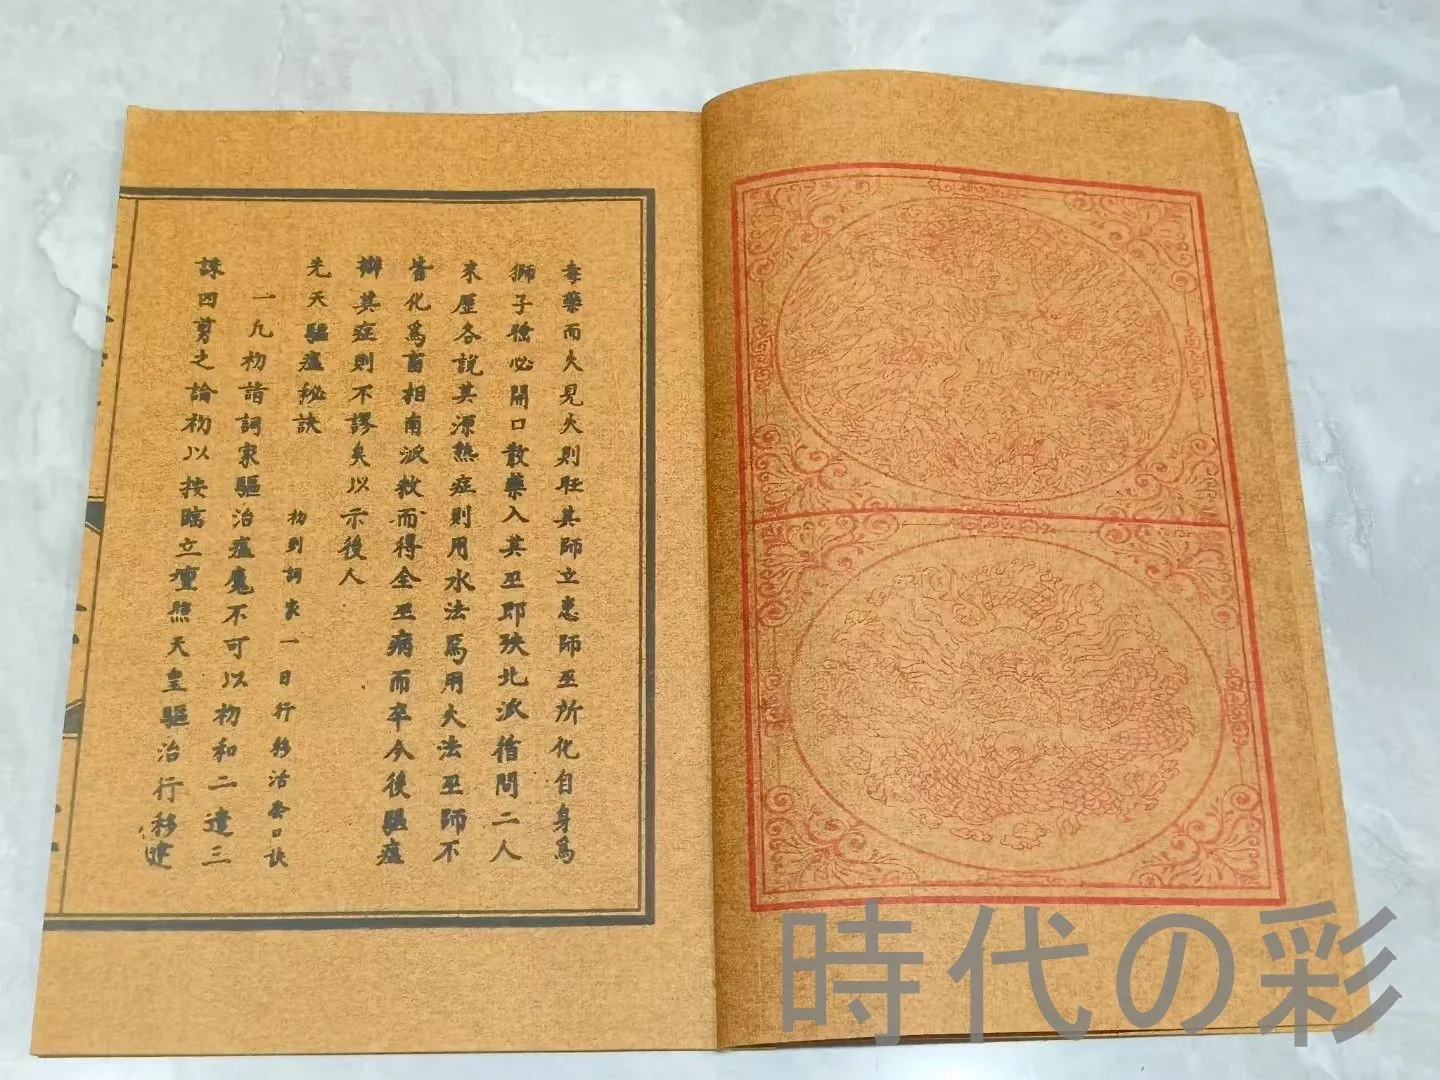 毒藥而火見火則旺其師立惠師巫所化自身為
獅子悋必開口散藥入其巫即殃北派循問二人
來歷各說其源熱症則用水法為用火法巫師不
皆化為畜相南派救而得全巫病而卒今後驅瘟
辦其症則不謬矣以示後人
先天驅瘟秘訣
初到詞家一日行移活套口訣
一凡初詣詞家驅治瘟魔不可以初和二遣三
誅四剪之論初以按臨立壇照天皇驅治行移建
時代の彩